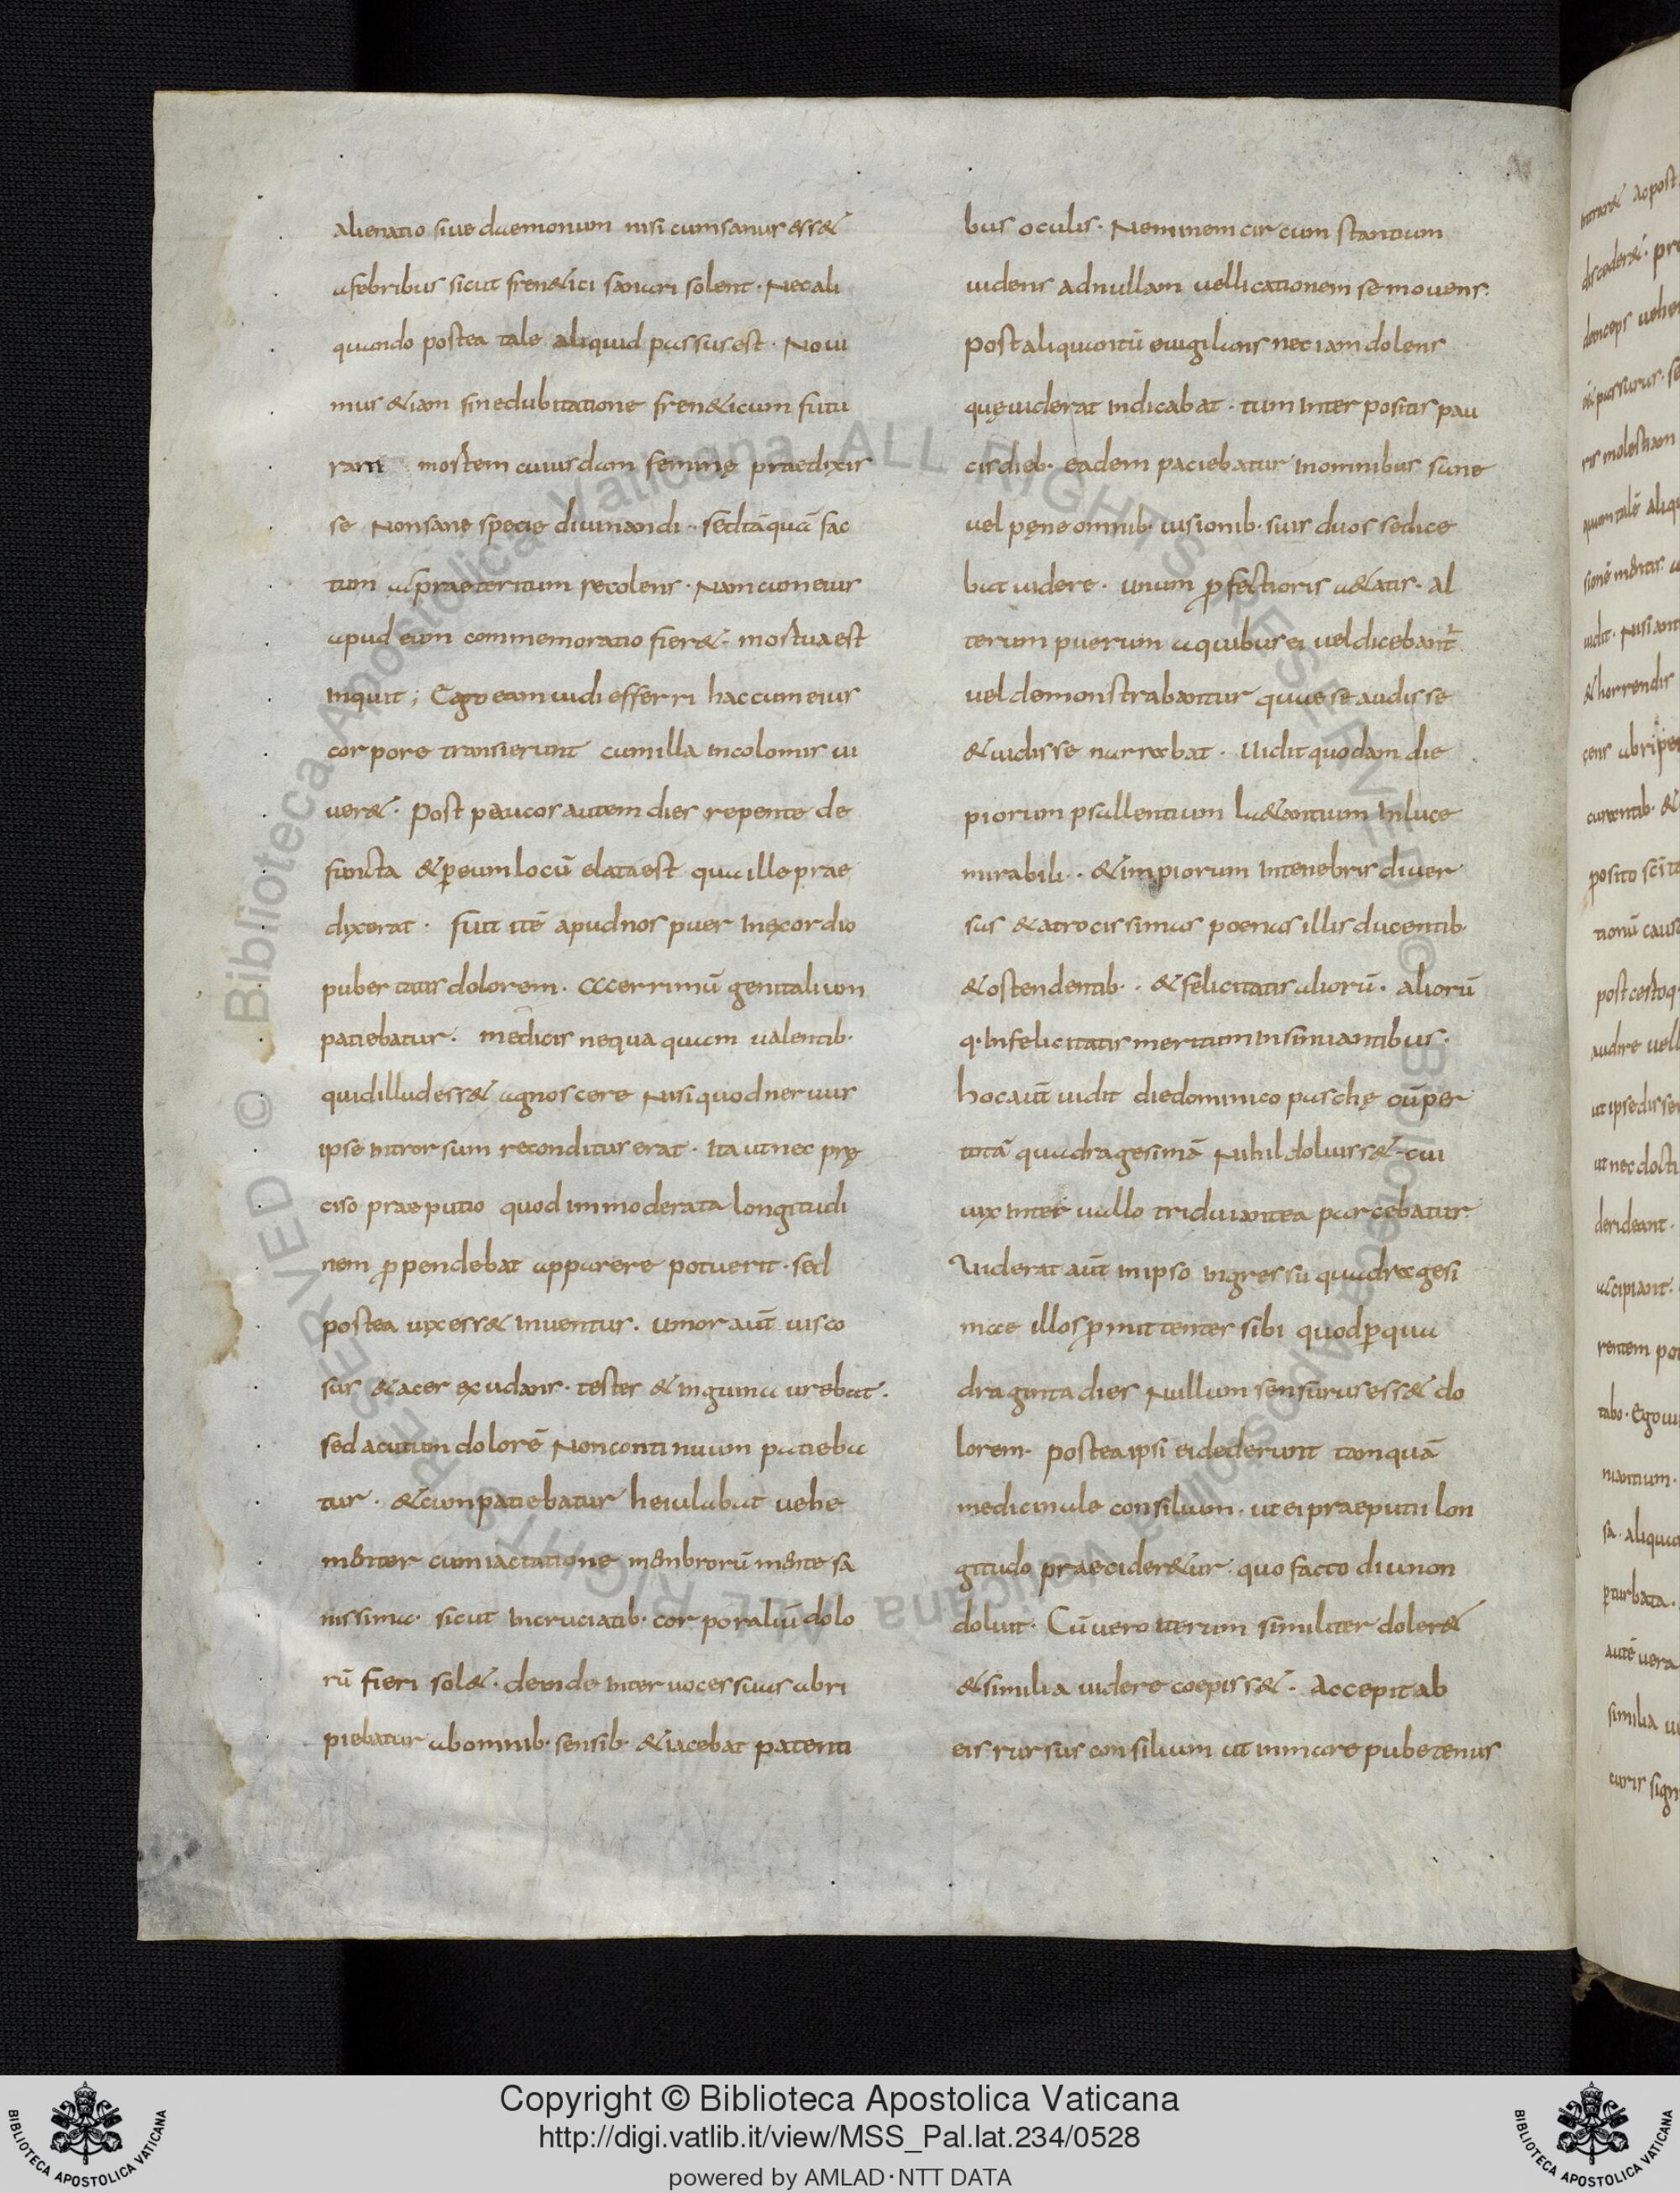 alienatio siue daemonum nisi cum sanus ess&
a febribus sicut fren&ici sanari solent · Nec ali
quando postea tale aliquid passus est · Noui
mus &iam sine dubitatione fren&icum futu
ram mortem cuiusdam feminę praedixis
se Non sane specie diuinandi · sed tāquā fac
tum a&praeteritum recolens · Nam cum eius
apud eum commemoratio fier& · mortua est
inquit ; Ego eam uidi efferri hac cum eius
corpore transierunt cum illa incolomis ui
uer& · Post paucos autem dies repente de
functa & ꝑ eum locū elata est qua ille prae
dixerat · fuit itē apud nos puer in exordio
pubertatis dolorem · Accerrimū genitalium
patiebatur · medicis nequaquam ualentib·
quid illud ess& agnoscere Nisi quod neruus
ipse introrsum reconditus erat · Ita ut nec prę
ciso praeputio quod immoderata longitudi
nem ꝓpendebat apparere potuerit · sed
postea uix ess& inuentus · umor aūt uisco
sus & acer exudans · testes & inguina urebat ·
sed acutum dolorē Non continuum patieba
tur · & cum patiebatur heiulabat uehe
menter cum iactatione membrorū mente sa
nissima · sicut in cruciatib· corporaliū dolo
rū fieri sol& · deinde inter uoces suas abri
piebatur ab omnib· sensib· & iacebat patenti
bus oculis · Neminem circumstantium
uidens ad nullam uellicationem se mouens ·
post aliquantū euigilans nec iam dolens
quę uiderat indicabat · tum inter positis pau
cis dieb· eadem paciebatur in omnibus sane
uel pęne omnib· uisionib· suis duos se dice
bat uidere · unum ꝓfectioris a&atis · al
terum puerum a quibus ei uel dicebant̄
uel demonstrabantur quae se audisse
& uidisse narrabat · Uidit quodam die
piorum psallentium la&antium in luce
mirabili · & impiorum in tenebris diuer
sas & atrocissimas poenas illis ducentib·
& ostendentib· · & felicitatis aliorū · aliorū
q· infelicitatis meritum insinuantibus ·
hoc aūt uidit die dominico paschę cū per
totā quadragesimā Nihil doluiss& cui
uix interuallo triduí antea parcebatur
Uiderat aūt in ipso ingressu quadragesi
mae illos ꝓmittentes sibi quod ꝑ qua
draginta dies Nullum sensurus ess& do
lorem · postea ipsi ei dederunt tamquā
medicinale consilium · ut ei praeputii lon
gitudo praecider&ur quo facto diu non
doluit · Cū uero iterum similiter doler&
& similia uidere coepiss& · Accepit ab
eis rursus consilium ut in mare pube tenus
Copyright © Biblioteca Apostolica Vaticana
http://digi.vatlib.it/view/MSS_Pal.lat.234/0528
powered by AMLAD·NTT DATA